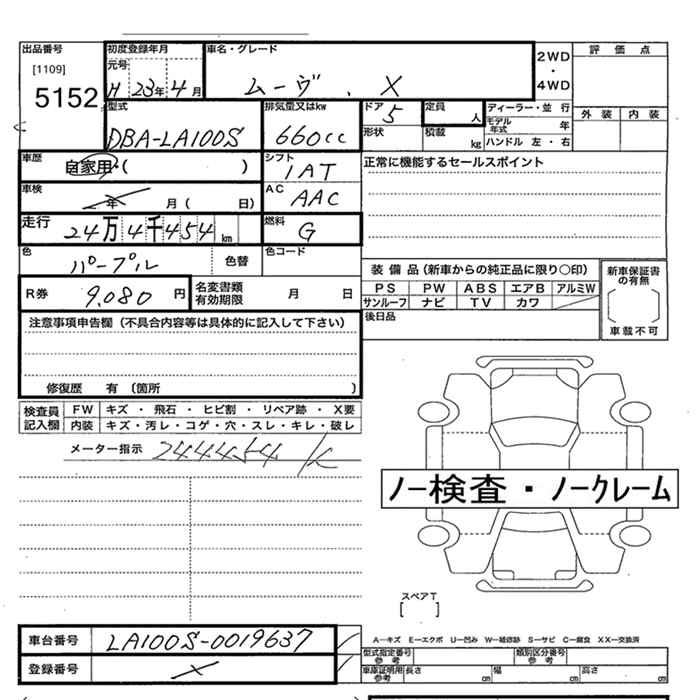 出品番号 初度登録年月 車名・グレード 2WD・4WD 評価点
[1109] 元号
5152 H 23年 4月 ムーヴ . X
型式 排気量又はkw ドア 5 定員 人 ディーラー・並 行 外装 内装
DBA-LA100S 660cc 形状 積載 kg モデル年式 年
ハンドル 左・右
車歴 自家用・( ) シフト IAT 正常に機能するセールスポイント
車検 年 月( 日) AC AAC
走行 24万4千454 km 燃料 G
色 パープル 色替 色コード
装備品(新車からの純正品に限り○印) 新車保証書の有無
R券 9,080 円 名変書類有効期限 月 日 PS PW ABS エアB アルミW
サンルーフ ナビ TV カワ
注意事項申告欄(不具合内容等は具体的に記入して下さい) 後日品 車載不可
修復歴 有 (箇所 )
検査員記入欄 FW キズ・飛石・ヒビ割・リペア跡・X要
内装 キズ・汚レ・コゲ・穴・スレ・キレ・破レ
メーター指示 244454 K
ノー検査・ノークレーム
スペアT
[ ]
車台番号 LA100S-0019637
A－キズ E－エクボ U－凹み W－補修跡 S－サビ C－腐食 XX－交換済
登録番号 X 型式指定番号 参考 類別区分番号 参考
車庫証明用 参考 長さ cm 幅 cm 高さ cm